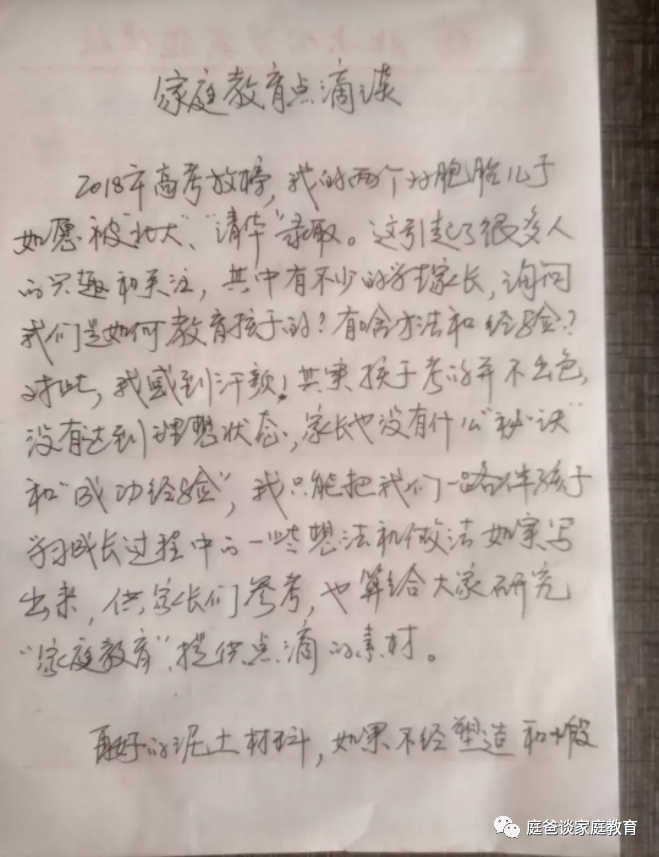 家庭教育点滴谈
2018年高考放榜,我的两个双胞胎儿子
如愿被"北大"、"清华"录取。这引起了很多人
的兴趣和关注,其中有不少的学生家长,询问
我们是如何教育孩子的?有啥方法和经验?
对此,我感到汗颜!其实孩子考的并不出色,
没有达到理想状态,家长也没有什么"秘诀"
和"成功经验",我只能把我们一路伴孩子
学习成长过程中的一些想法和做法如实写
出来,供家长们参考,也算给大家研究
"家庭教育"提供点滴的素材。
再好的泥土材料,如果不经塑造和煅
庭爸谈家庭教育